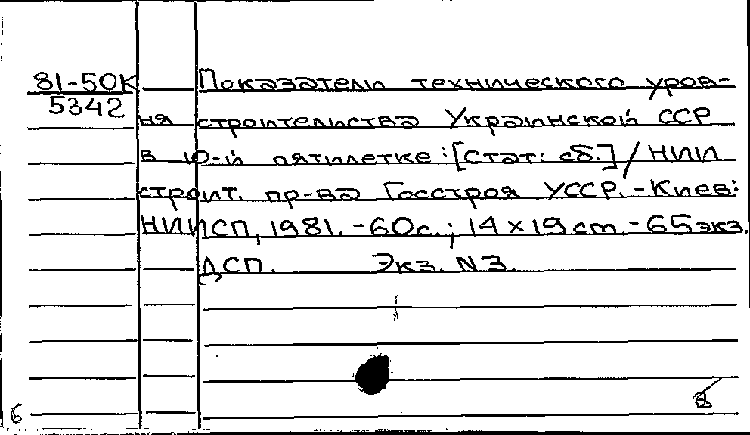 81-50К Показатели технического уров-
5342
ня строительства Украинской ССР
в 10-й пятилетке: [Стат. сб.] / НИИ
строит. пр-ва Госстроя УССР. - Киев:
НИИСП, 1981. - 60с.; 14 x 19 cm - 65 экз.
ДСП. Экз. N3.
8
6